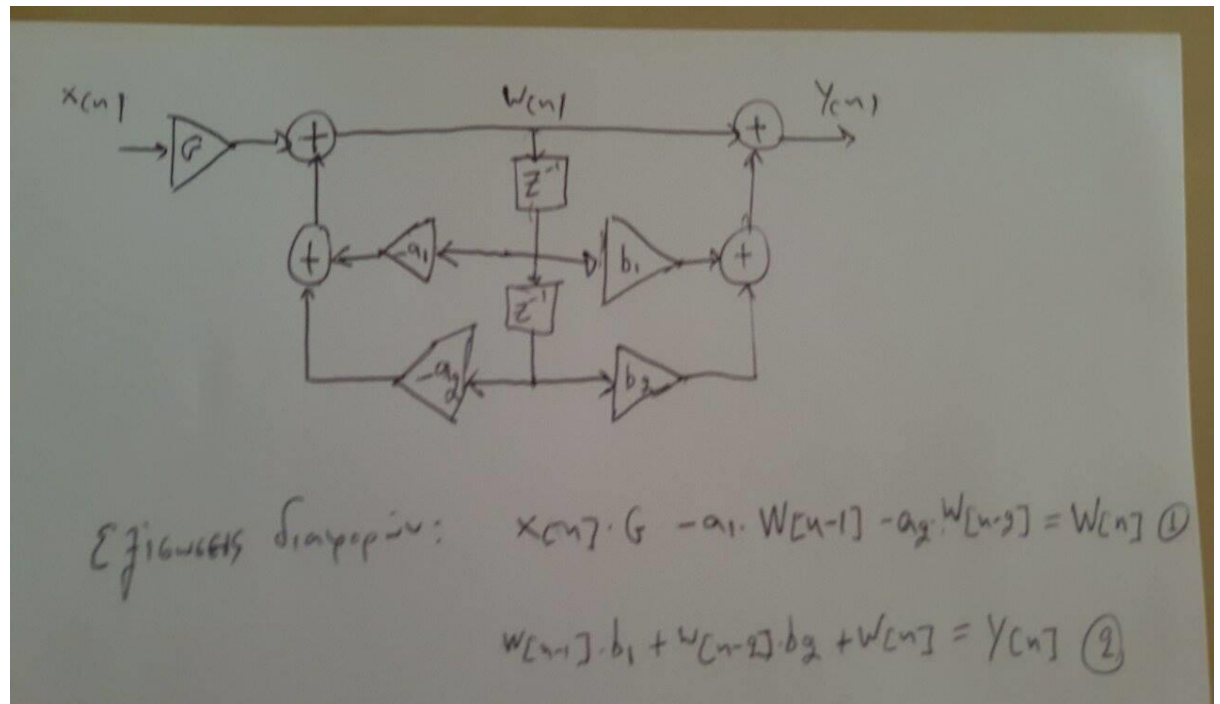 x[n] W[n] Y[n]
G + +
z⁻¹
+ -a₁ b₁ +
z⁻¹
-a₂ b₂
Εξισώσεις διαφορών: x[n]·G -a₁·W[n-1] -a₂·W[n-2] = W[n] ①
W[n-1]·b₁ + W[n-2]·b₂ + W[n] = Y[n] ②